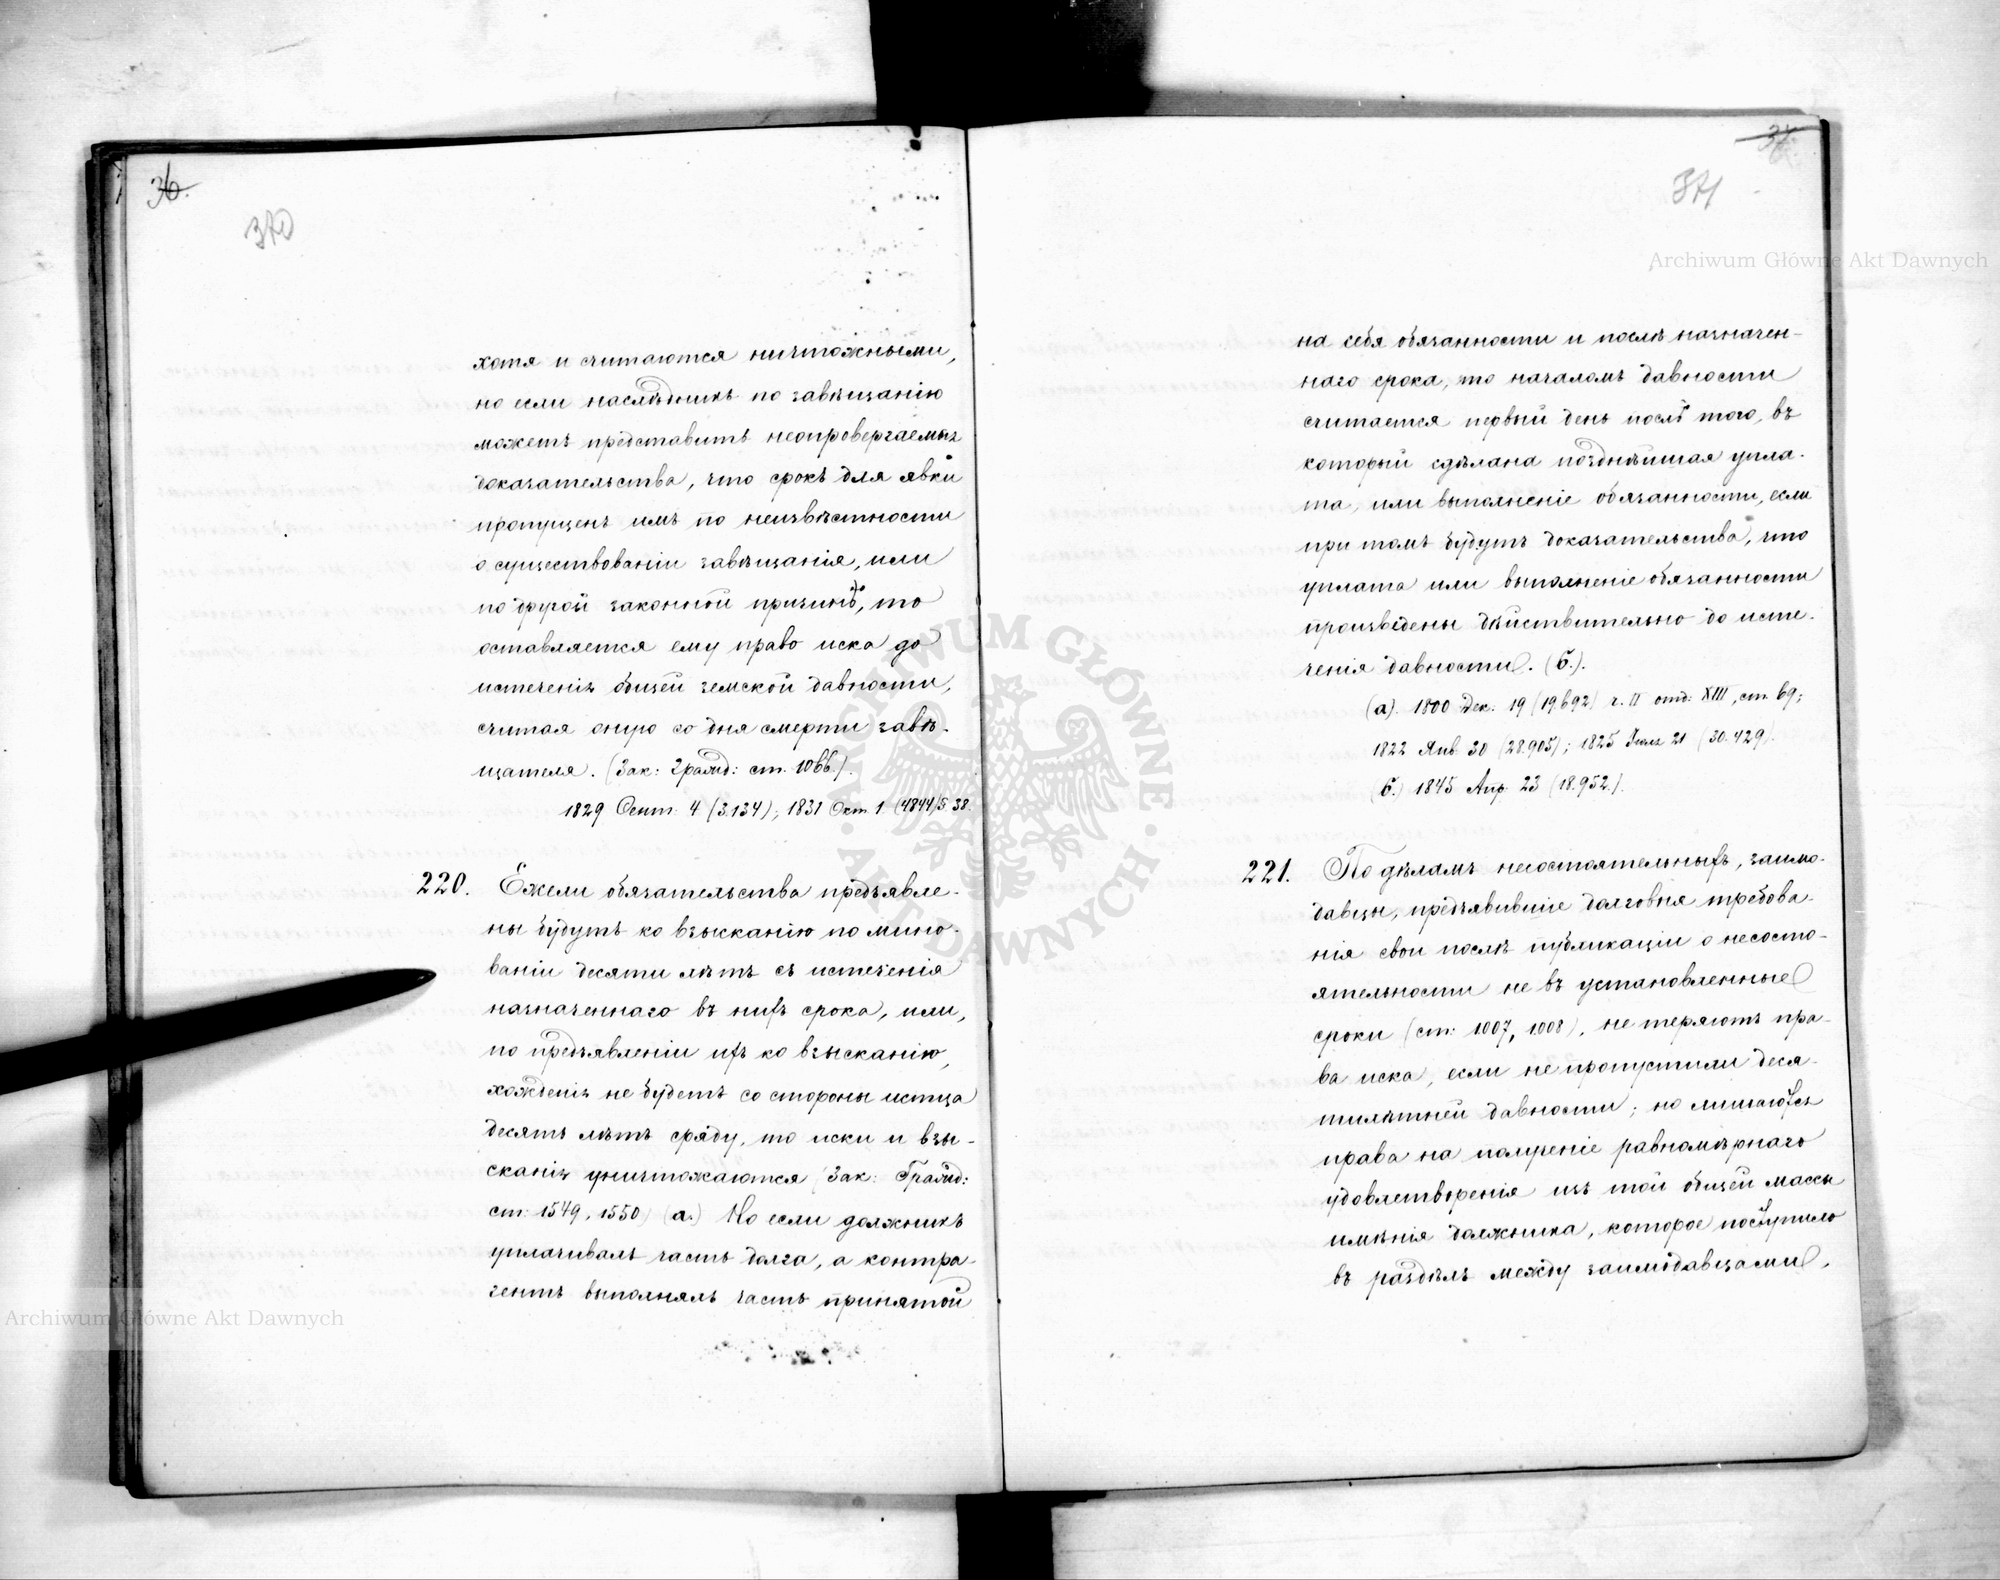 36.
370
хотя и считаются ничтожными,
но если наслѣдникъ по завѣщанію
можетъ представить неопровергаемыя
доказательства, что срокъ для явки
пропущенъ имъ по неизвѣстности
о существованіи завѣщанія, или
по другой законной причинѣ, то
оставляется ему право иска до
истеченія общей земской давности,
считая оную со дня смерти завѣ-
щателя. (Зак: Гражд: ст. 1066.).
1829 Сент: 4 (3.134); 1831 Окт. 1. (4844) §. 38.
220. Ежели обязательства предъявле-
ны будутъ ко взысканію по мино-
ваніи десяти лѣтъ съ истеченія
назначеннаго въ нихъ срока, или,
по предъявленіи ихъ ко взысканію,
хожденія не будетъ со стороны истца
десять лѣтъ сряду, то иски и взы-
сканія уничтожаются (Зак: Гражд:
ст: 1549, 1550) (а.) Но если должникъ
уплачивалъ часть долга, а контра-
гентъ выполнялъ часть принятой
37.
371
на себя обязанности и послѣ назначен-
наго срока, то началомъ давности
считается первый день послѣ того, въ
который сдѣлана позднѣйшая упла-
та, или выполненіе обязанности, если
при томъ будутъ доказательства, что
уплата или выполненіе обязанности
произведены дѣйствительно до исте-
ченія давности. (б.).
(а). 1800 Дек: 19 (19.692) ч. II отд: XIII, ст. 69;
1822 Янв. 30 (28.905); 1825 Іюля 21 (30.429).
(б.) 1845 Апр: 23 (18.952.).
221. По дѣламъ несостоятельныхъ, заимо-
давцы, предъявившіе долговыя требова-
нія свои послѣ публикаціи о несосто-
ятельности не въ установленные
сроки (ст: 1007, 1008), не теряютъ пра-
ва иска, если не пропустили деся-
тилѣтней давности; но лишаются
права на полученіе равномѣрнаго
удовлетворенія изъ той общей массы
имѣнія должника, которое поступило
въ раздѣлъ между заимодавцами.
Archiwum Główne Akt Dawnych
Archiwum Główne Akt Dawnych
ARCHIWUM GŁÓWNE AKT DAWNYCH